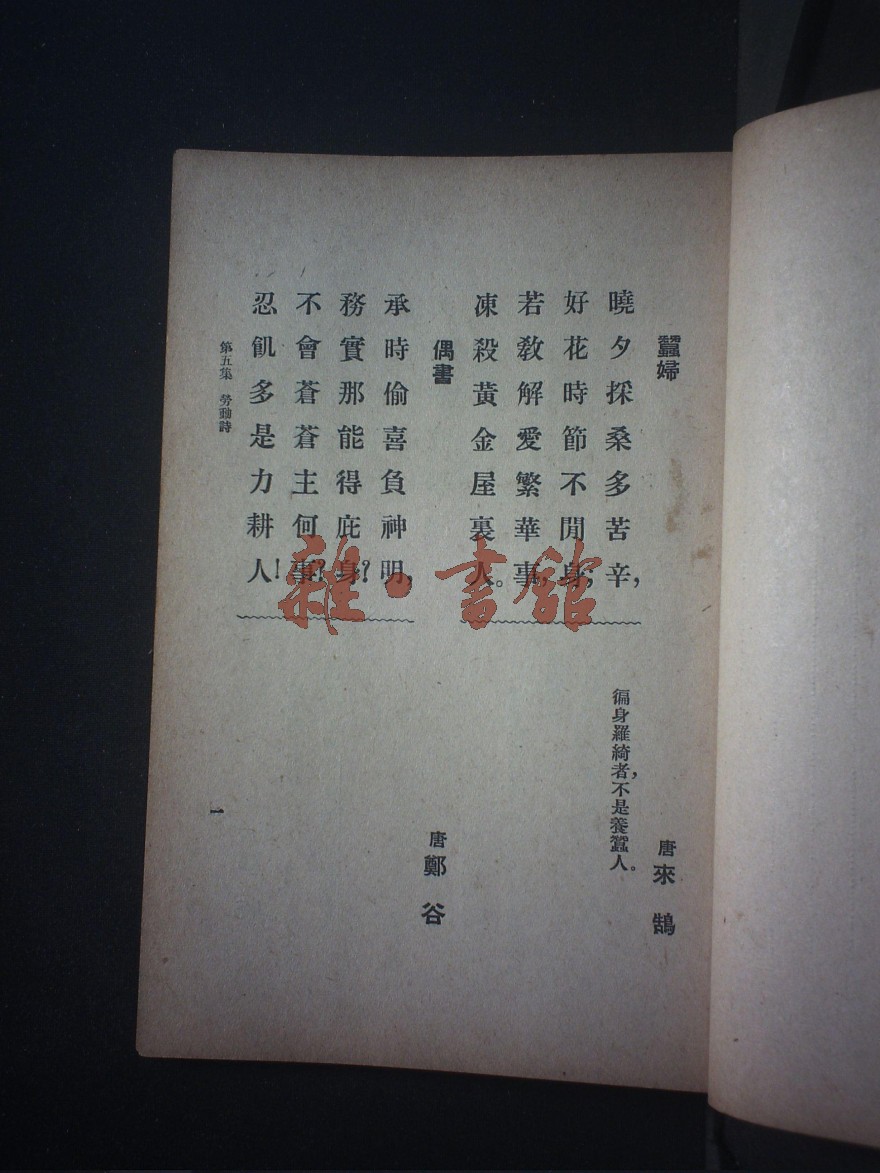 蠶婦
唐 來鵠
曉夕採桑多苦辛，
好花時節不閒身；
若敎解愛繁華事，
凍殺黃金屋裏人。
徧身羅綺者，不是養蠶人。
偶書
唐 鄭谷
承時偷喜負神明，
務實那能得庇身？
不會蒼蒼主何事？
忍飢多是力耕人！
第五集 勞動詩
一
雜·書館